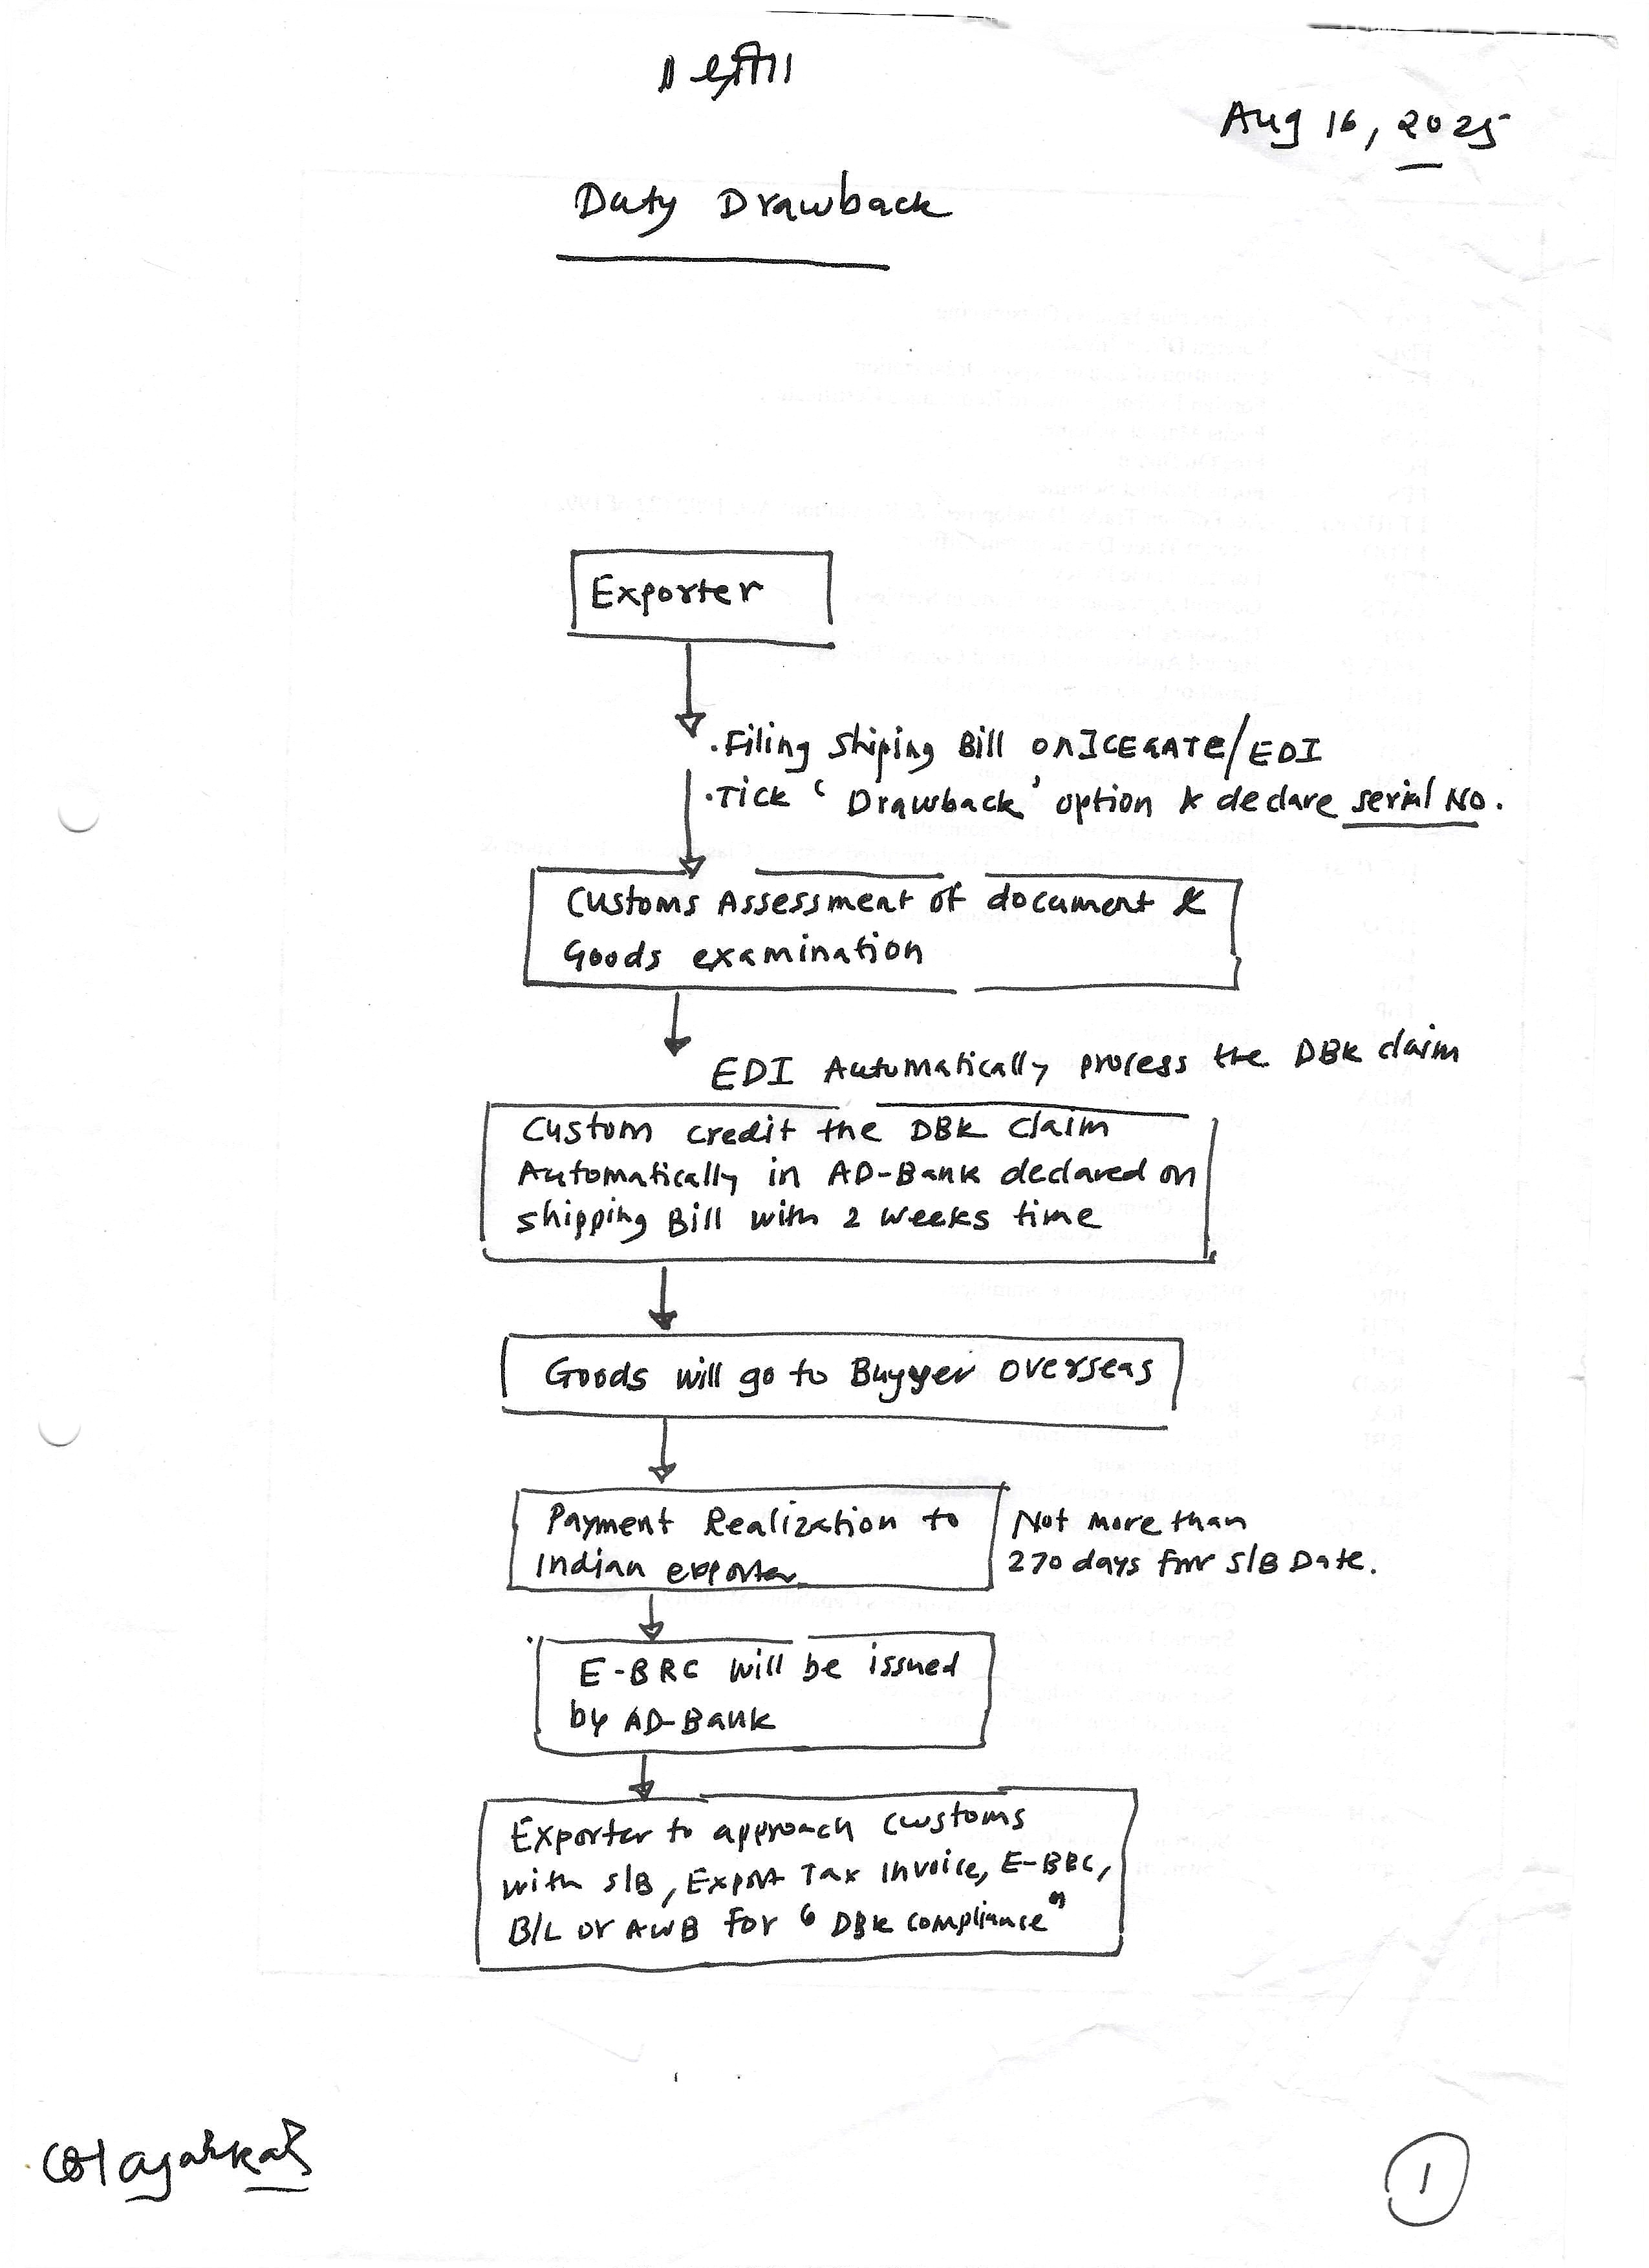 ॥ श्री ॥
Aug 16, 2025
Duty Drawback
Exporter
. Filing Shiping Bill on ICEGATE/EDI
. Tick ‘Drawback’ option & declare serial No.
Customs Assessment of document &
Goods examination
EDI Automatically process the DBK claim
Custom credit the DBK claim
Automatically in AD-Bank declared on
shipping Bill with 2 weeks time
Goods will go to Buyyer overseas
Payment Realization to
Indian exporter
Not more than
270 days for S/B Date.
E-BRC will be issued
by AD-Bank
Exporter to approach customs
with S/B, Export Tax Invoice, E-BRC,
B/L or AWB for “DBK compliance”
1